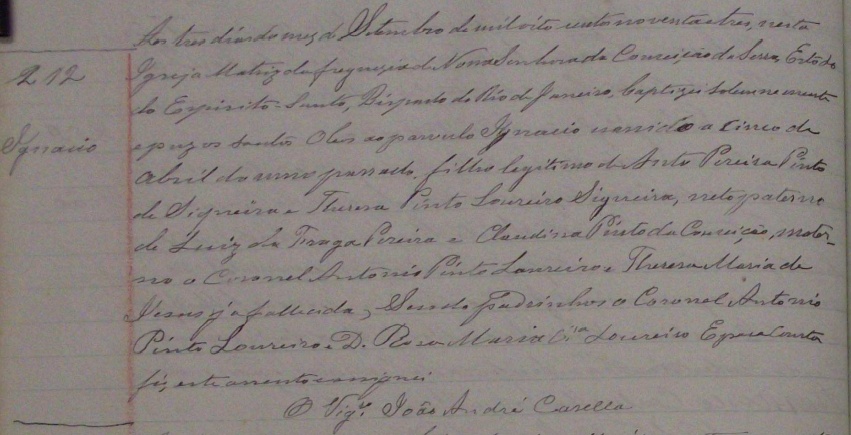 Aos tres dias do mez de Setembro de mil oito cento noventa e tres, nesta
212
Igreja Matriz da freguezia de Nossa Senhora da Conceição da Serra, Estado
do Espirito-Santo, Bispado do Rio de Janeiro, baptizei solemnemente
e puz os Santos Oleos ao parvulo Ignacio nascido a cinco de
Ignacio
Abril do anno passado, filho legitimo de Anto Pereira Pinto
de Siqueira e Theresa Pinto Loureiro Siqueira, neto paterno
de Luiz da Fraga Pereira e Claudina Pinto da Conceição, mater-
no o Coronel Antonio Pinto Loureiro e Theresa Maria de
Jesus já fallecida, Sendo padrinhos o Coronel Antonio
Pinto Loureiro e D. Rosa Maria Loureiro E para constar
fiz este assento e assignei
O Vigr.º João André Casella